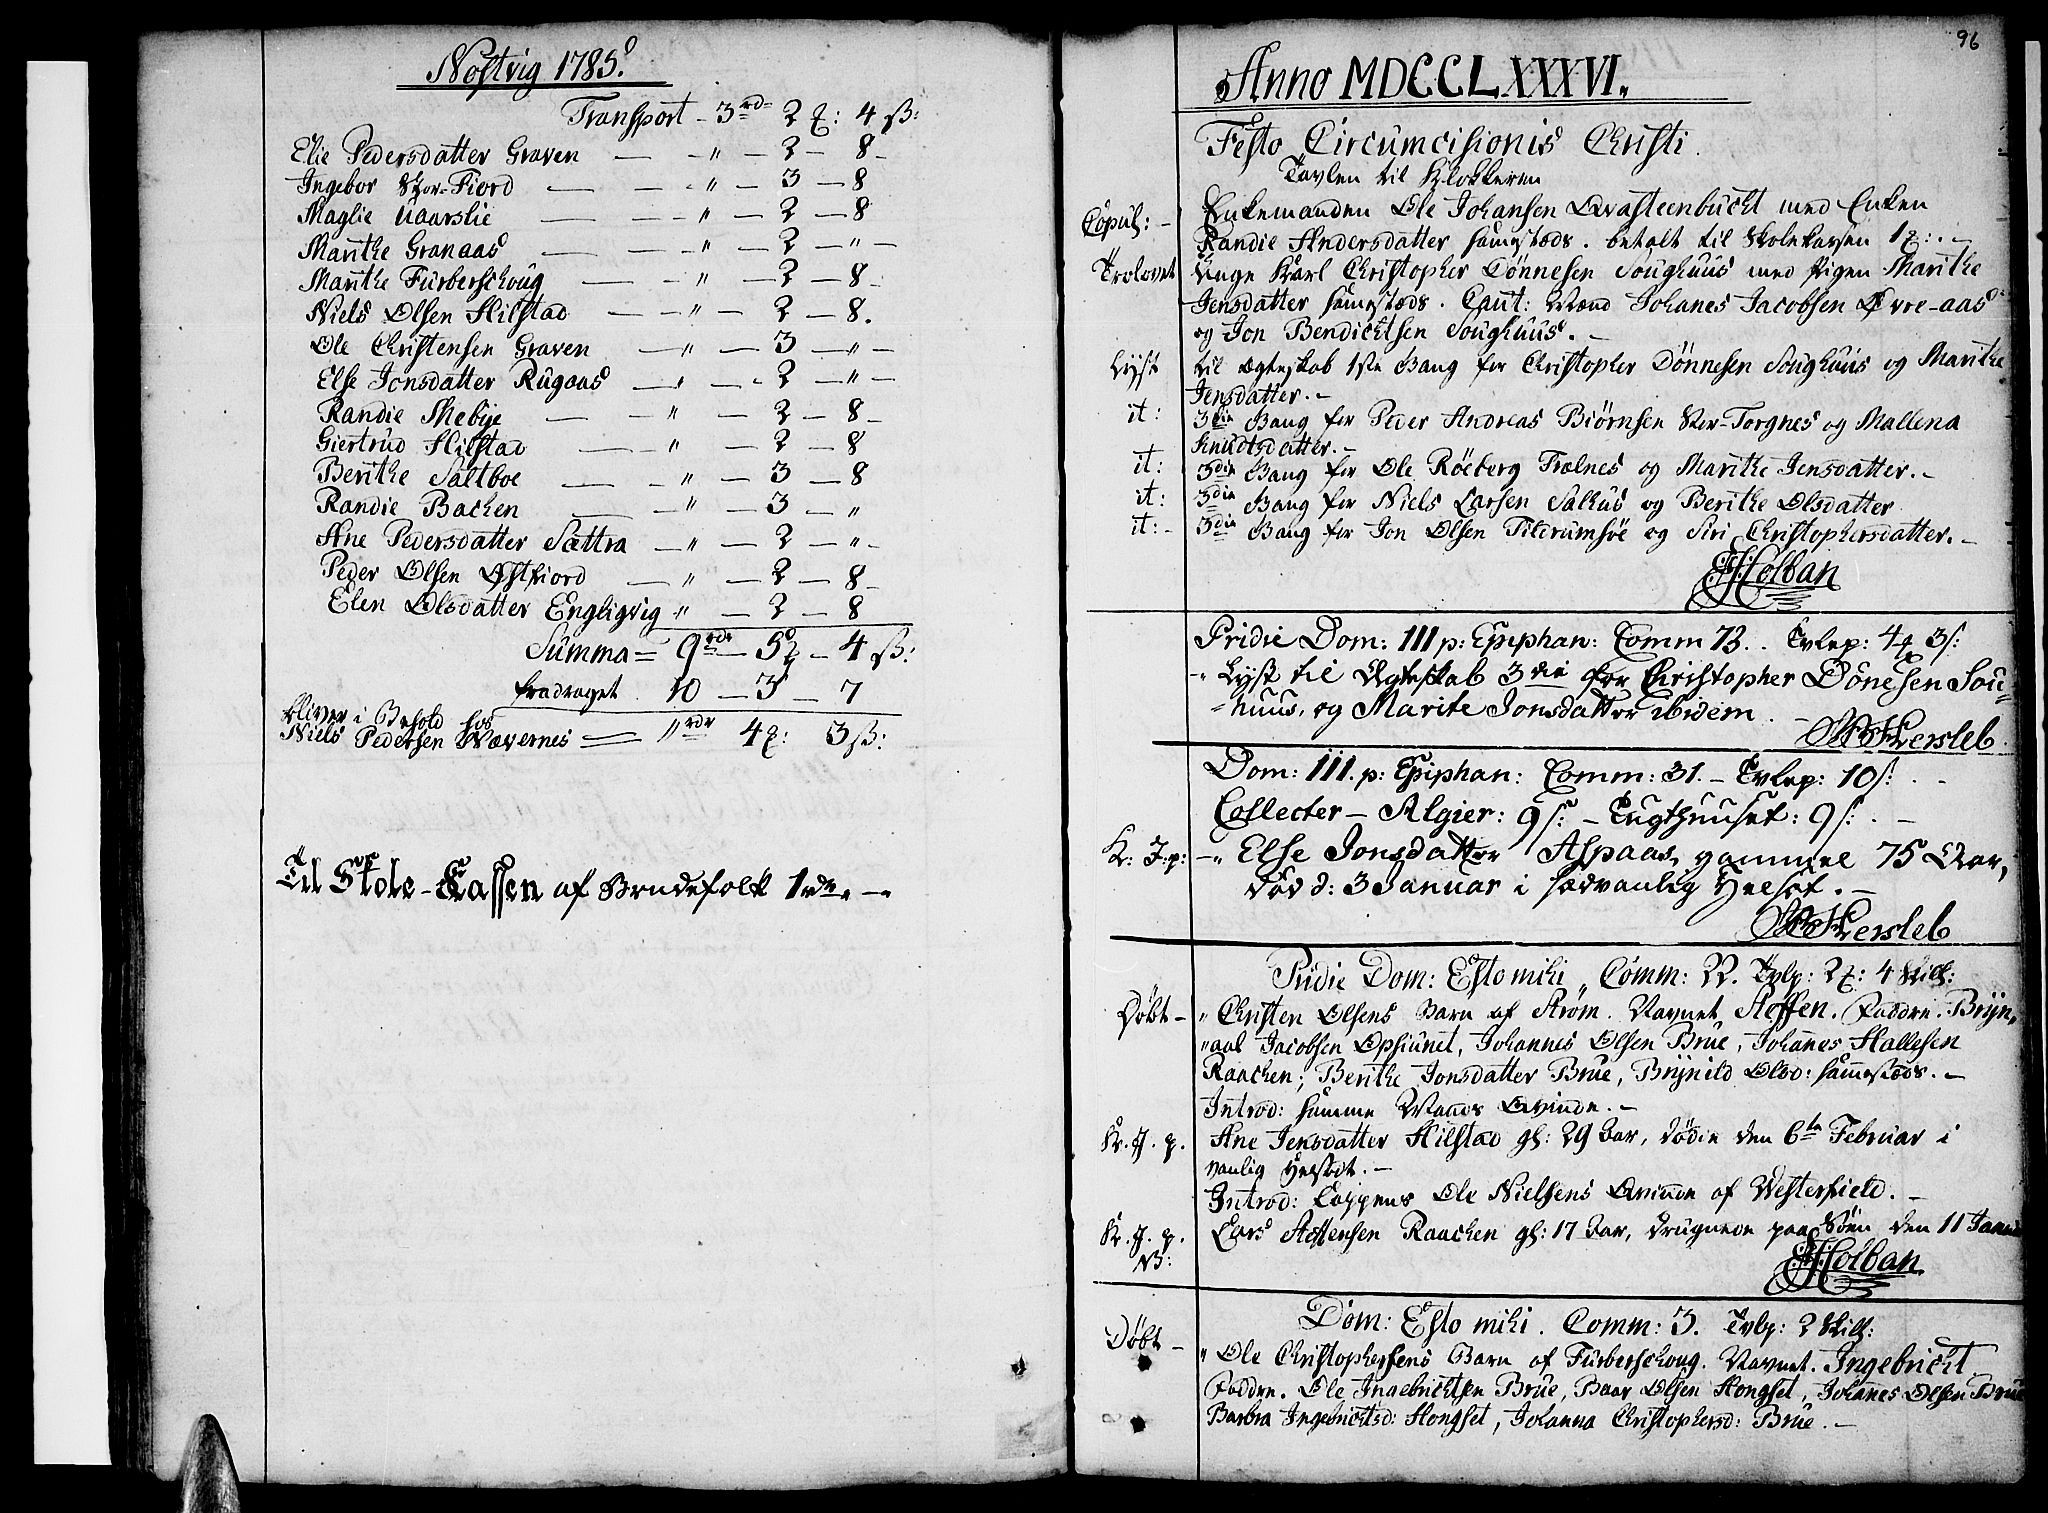 Nostvig 1785.
Transport - 3 rd 2 ȝ: 4 ß:
Elie Pedersdatter Graven — - " — 2 — 8 -
Ingebor Stor-Fiord — — - " — 3 — 8
Maglie Aaarslie — — - " — 2 — 8
Marithe Granaas — — " — 2 — " —
Marithe Furberschoug — - " — 2 — 8 -
Niels Olsen Hilstad — - " — 2 — 8.
Ole Christensen Graven — " — 3 — " —
Else Jonsdatter Rugaas — " — 2 — " —
Randie Shebye — — " — 2 — 8 -
Giertrud Hilstad — " — 2 — 8
Berithe Saltboe — — " — 3 — 8
Randie Bachen — " — 3 — "
Ane Pedersdatter Sættra — " — 2 — " -
Peder Olsen Østfiord — " — 2 — 8 -
Elen Olsdatter Engligvig " — 2 — 8
Summa = 9 rdr — 5 ȝ — 4 ß:
fradraget 10 — 3 — 7
bliver i Behold hos
Niels Pedersen Nævernes = " rdr 4 ȝ: 3 ß:
Til Skole-Cassen af Brudefolk 1 rdr. —
96
Anno MDCCLXXXVI.
Festo Circumcisionis Christi.
Tavlen til Klokkeren
Copul: - Enkemanden Ole Johansen Qvasteenbucht med Enken
Randie Andersdatter sammestæds. betalt til Skolekassen 1 ȝ: -
Trolovet Unge Karl Christopher Dönnesen Soughuus med Pigen Marithe
Jensdatter sammestæds. Caut: Mænd Johanes Jacobsen Øvre-aas
og Jon Bendichtsen Soughuus. -
Lyst til Ægteskab 1ste Gang for Christopher Dönnesen Soughuus og Marithe
Jensdatter. -
it: 3die Gang for Peder Andreas Biörnsen Stor-Torgnes og Mallena
Knudtsdatter. -
it: 3die Gang for Ole Röeberg Trælnes og Marithe Jensdatter. -
it: 3die Gang for Niels Larsen Salhus og Berithe Olsdatter
it: - 3die Gang for Jon Olsen Tilrumsöe og Siri Christophersdatter. -
Holban
Pridie Dom: III p: Epiphan: Comm 73. Tvlep: 4 ȝ 3 ß:
- Lyst til Ægteskab 3die for Christopher Dönesen Sou=
=huus, og Marite Jonsdatter ibidem. -
Hersleb.
Dom: III. p: Epiphan: Comm: 31. - Tvlep: 10 ß: -
Collecter - Algier: 9 ß: - Tugthuuset: 9 ß: -
K: J: p: - " Else Jonsdatter Aspaas, gammel 75 Aar,
död d: 3 Januar i sædvanlig Helsot. -
Hersleb
Pridie Dom: Esto mihi " Comm: 22. Tvlp: 2 ȝ: 4 Skill:
Döbt - " Christen Olsens Barn af Ström. Navnet Steffen. Faddre. Bryn"
"aal Jacobsen Opsiunet, Johannes Olsen Brue, Johanes Hallesen
Raachen; Berithe Jonsdatter Brue, Brynild Olsd: sammestæds. -
Introd: samme Mands Qvinde. -
K. J. p. Ane Jensdatter Hilstad gl: 29 Aar, döde den 6te Februar i
vanlig Helsodt. -
Introd: Lappens Ole Nielsens Qvinde af Westerfield. -
K. J. p. Lars Steffensen Raachen gl: 17 Aar, druknede paa Söen den 11 Janu
Holban
Dom: Esto mihi. Comm: 3. Tvlp: 2 Skill:
Döbt - " Ole Christophersens Barn af Furberschoug. Navnet. Ingebricht
Faddre. Ole Ingebrichtsen Brue, Baar Olsen Hongset, Johanes Olsen Brue
Barbra Ingebrichtsd: Hongset, Johanna Christophersd: Brue. -